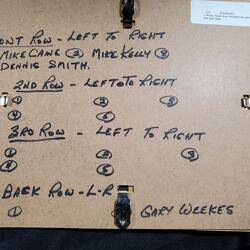 ONT ROW - LEFT TO RIGHT
MIKE CANE ② MIKE KELLY ③
DENNIS SMITH.
2ND ROW - LEFT TO RIGHT
① ② ③
④ ⑤
3RD ROW - LEFT TO RIGHT
① ② ③
④ ⑤
BACK ROW - L-R
① GARY WEEKES